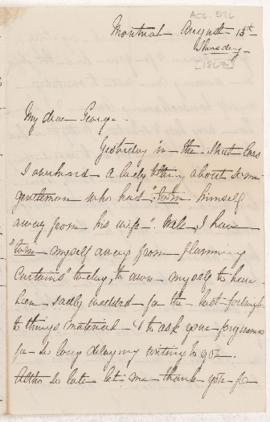 Acc. 576
Montreal August 13th
Thursday
[1868]
My dear George.
Yesterday in the Street Cars
I overheard a lady telling about some
gentleman who had "torn himself
away from his wife". Well I have
"torn myself away from flannery
Curtains" today, to own myself to have
been sadly wedded for the last fortnight
to things material & to ask your forgiveness
for so long delaying writing to you.
Altho so late let me thank you for